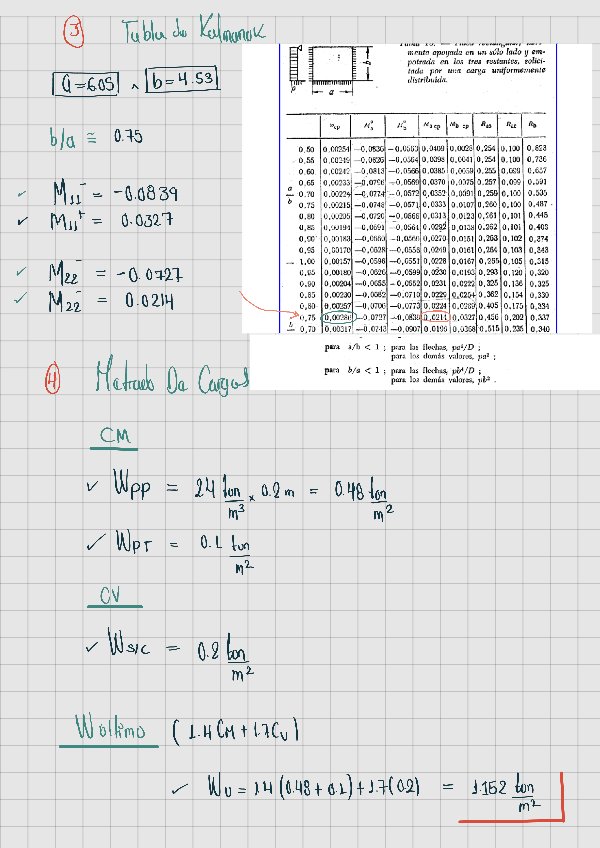 3 Tabla de Kalmanok
a=6.05 ^ b=4.53
b/a ≅ 0.75
✓ M11⁻ = -0.0839
✓ M11⁺ = 0.0327
✓ M22⁻ = -0.0727
✓ M22⁻ = 0.0214
mente apoyada en un sólo lado y em-
potrada en los tres restantes, solici-
tada por una carga uniformemente
distribuida.
P a b
0,50 0,00254 —0,0836 —0,0563 0,0409 0,0028 0,254 0,100 0,823
0,55 0,00249 —0,0826 —0,0564 0,0398 0,0041 0,254 0,100 0,736
0,60 0,00242 —0,0813 —0,0566 0,0385 0,0059 0,255 0,099 0,657
0,65 0,00233 —0,0796 —0,0569 0,0370 0,0075 0,257 0,099 0,591
a/b 0,70 0,00224 —0,0774 —0,0572 0,0352 0,0091 0,258 0,100 0,535
0,75 0,00215 —0,0748 —0,0571 0,0333 0,0107 0,260 0,100 0,487
0,80 —0,0720 0,0313 0,0123 0,261 0,101 0,445
0,85 —0,0691 —0,0561 0,0292 0,0138 0,262 0,101 0,408
0,90 0,0270 0,0151 0,263 0,102 0,374
0,95 0,00170 0,0249 0,0161 0,264 0,103 0,343
1,00 0,00157 —0,0596 —0,0551 0,0228 0,0167 0,265 0,105 0,315
0,95 0,00180 —0,0626 —0,0599 0,0230 0,0193 0,293 0,120 0,320
0,90 0,00204 —0,0655 —0,0652 0,0231 0,0222 0,325 0,136 0,325
0,85 0,00230 —0,0682 —0,0710 0,0229 0,0254 0,362 0,154 0,330
0,80 0,00257 —0,0706 0,0224 0,0289 0,405 0,175 0,334
0,75 0,00286 —0,0727 —0,0839 0,0214 0,0327 0,456 0,202 0,337
b/ 0,70 0,00317 —0,0743 —0,0907 0,0196 0,0368 0,515 0,235 0,340
para a/b < 1 ; para las flechas, pa⁴/D ;
para los demás valores, pa² ;
para b/a < 1 ; para las flechas, pb⁴/D ;
para los demás valores, pb² .
4 Metrado De Cargas
CM
✓ Wpp = 2.4 ton/m³ x 0.2 m = 0.48 ton/m²
✓ WPT = 0.1 ton/m²
CV
✓ Ws/c = 0.2 ton/m²
Wúltimo (1.4CM+1.7CV)
✓ Wu = 1.4(0.48+0.1)+1.7(0.2) = 1.152 ton/m²